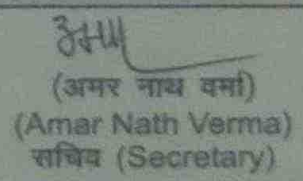 (अमर नाथ वर्मा)
(Amar Nath Verma)
सचिव (Secretary)